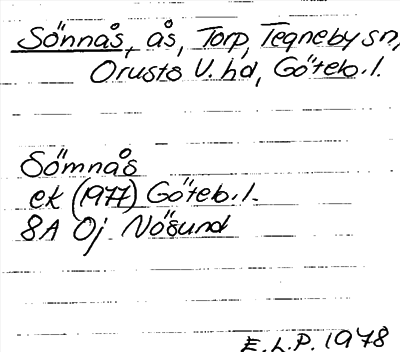 Sönnås, ås, Torp, Tegneby sn,
Orusts V. hd, Göteb. l.
Sömnås
ek (1977) Göteb. l.
8A 0j Nösund
E.L.P. 1978